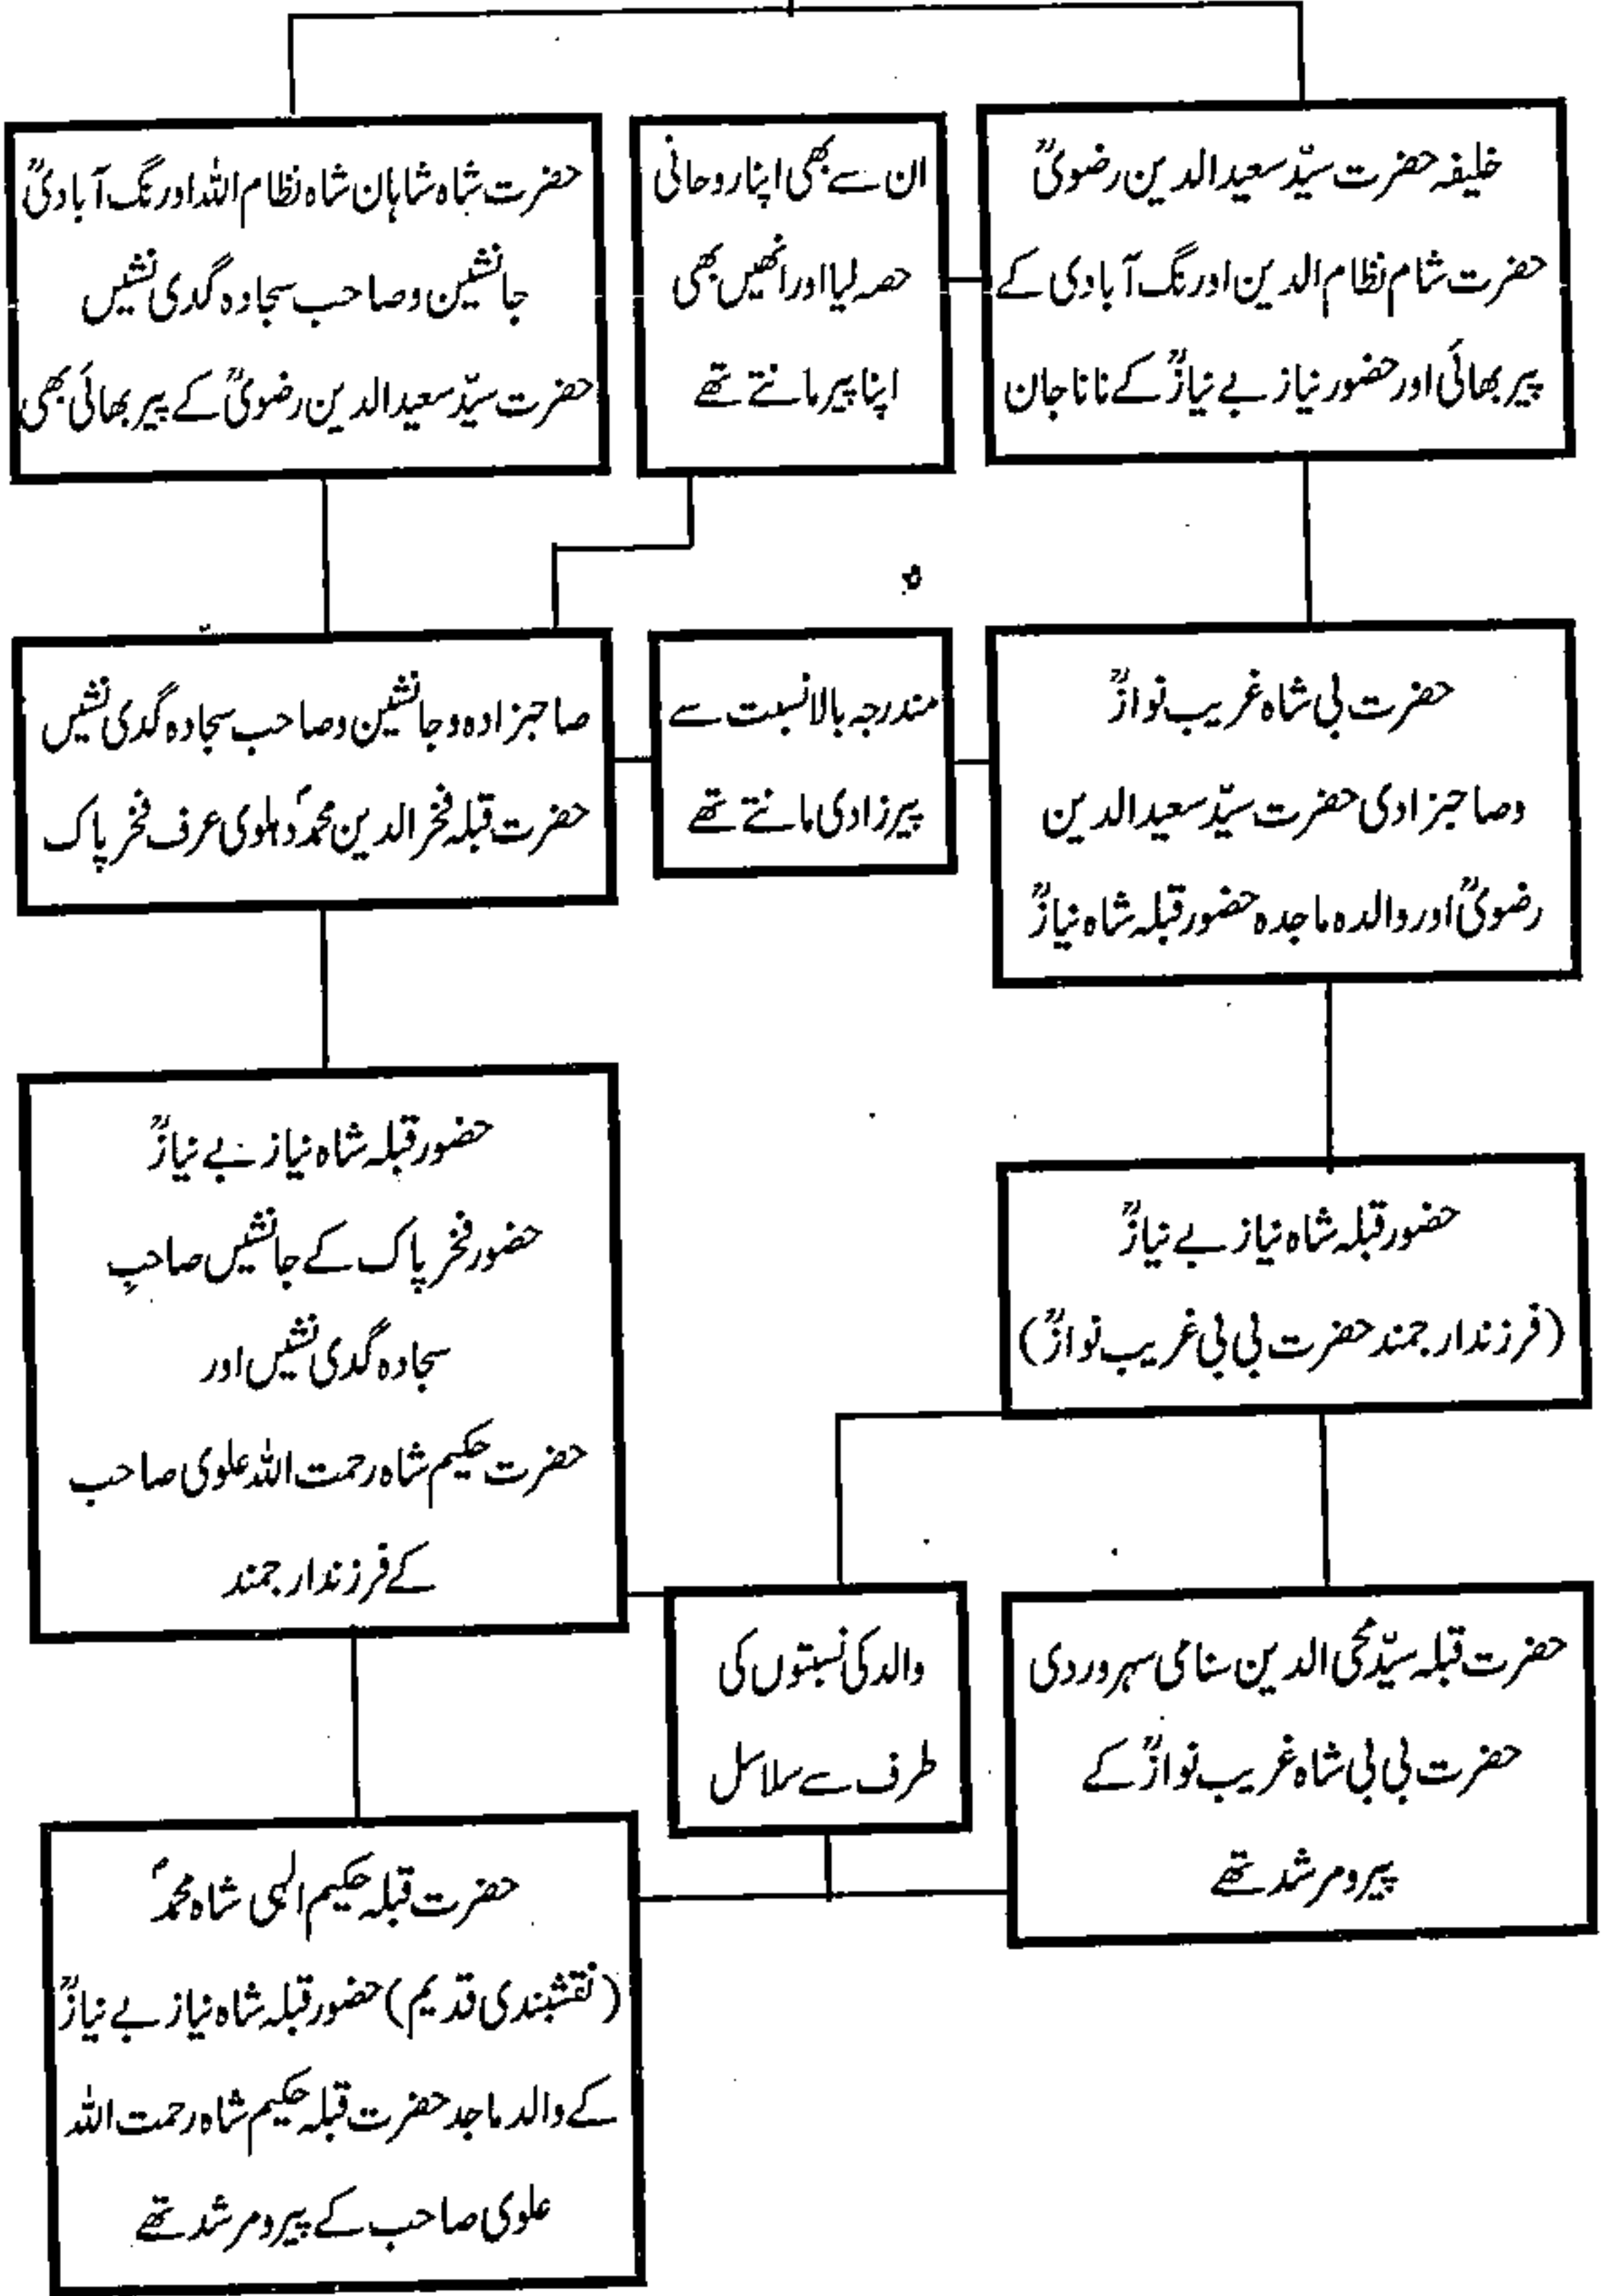 خلیفہ حضرت سیّد سعید الدین رضویؒ
حضرت شام نظام الدین اورنگ آبادی کے
پیر بھائی اور حضور نیاز بے نیازؒ کے نانا جان
ان سے بھی اپنا روحانی
حصہ لیا اور انھیں بھی
اپنا پیر مانتے تھے
حضرت شاہ شاہان شاہ نظام اللہ اورنگ آبادیؒ
جانشین وصاحب سجادہ گدی نشیں
حضرت سیّد سعید الدین رضویؒ کے پیر بھائی بھی
حضرت بی شاہ غریب نوازؒ
وصاحبزادی حضرت سیّد سعید الدین
رضویؒ اور والدہ ماجدہ حضور قبلہ شاہ نیازؒ
مندرجہ بالا نسبت سے
پیرزادی مانتے تھے
صاحبزادہ وجانشین وصاحب سجادہ گدی نشیں
حضرت قبلہ فخر الدین محمدؐ دہلوی عرف فخر پاک
حضور قبلہ شاہ نیاز بے نیازؒ
(فرزند ارجمند حضرت بی بی غریب نوازؒ)
حضور قبلہ شاہ نیاز بے نیازؒ
حضور فخر پاک کے جانشیں صاحبِ
سجادہ گدی نشیں اور
حضرت حکیم شاہ رحمت اللہ علوی صاحب
کے فرزند ارجمند
حضرت قبلہ سیّد محی الدین سنامی سہروردی
حضرت بی بی شاہ غریب نوازؒ کے
پیر و مرشد تھے
والد کی نسبتوں کی
طرف سے سلاسل
حضرت قبلہ حکیم الہی شاہ محمدؐ
(نقشبندی قدیم) حضور قبلہ شاہ نیاز بے نیازؒ
کے والد ماجد حضرت قبلہ حکیم شاہ رحمت اللہ
علوی صاحب کے پیر و مرشد تھے